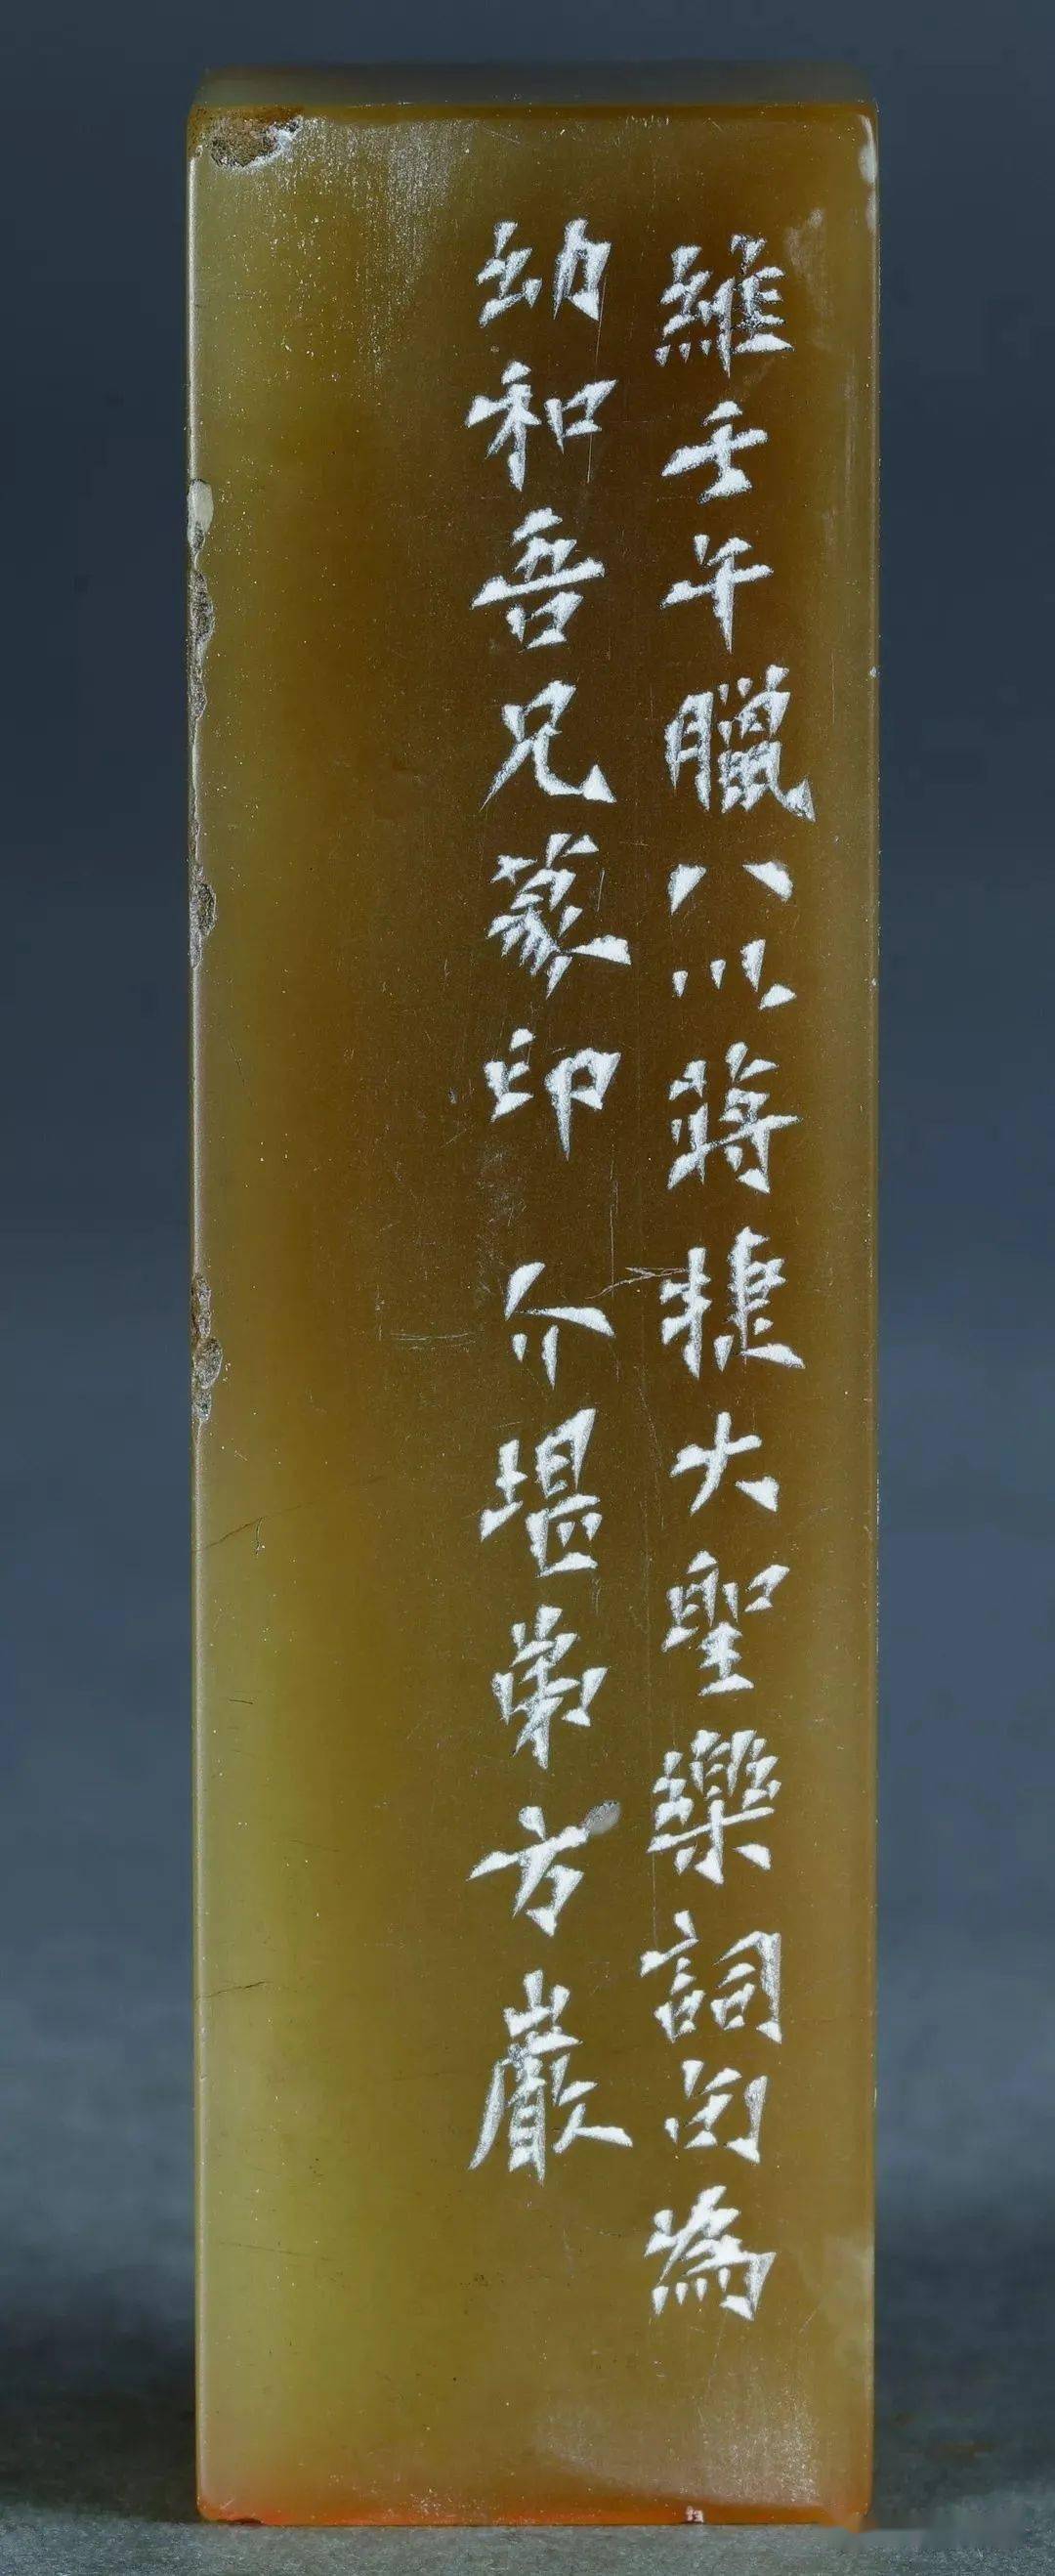 維壬午臘八以蔣捷大聖樂詞句為
幼和吾兄篆印 介堪弟方巖